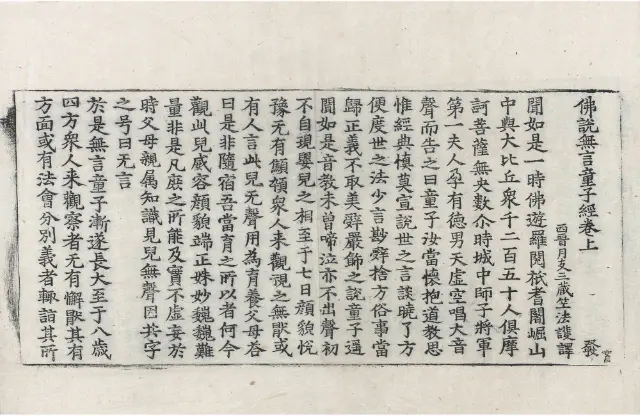 佛說無言童子經卷上　發
西晉月支三藏竺法護譯
聞如是一時佛遊羅閱祇耆闍崛山
中與大比丘眾千二百五十人俱摩
訶菩薩無央數尒時城中師子將軍
第一夫人孕有德男天虛空唱大音
聲而告之曰童子汝當懷抱道教思
惟經典慎莫宣說世之言談曉了方
便度世之法少言尠辭捨方俗事當
歸正義不取美辭嚴飾之說童子適
聞如是音教未曾啼泣亦不出聲初
不自現嬰兒之相至于七日顏貌悅
豫无有顑頷眾人來觀視之無猒或
有人言此兒无聲用為育養父母荅
曰是非隨宿吾當育之所以者何今
觀此兒威容顏貌端正姝妙巍巍難
量非是凡庶之所能及實不虛妄於
時父母親属知識見兒無聲因共字
之号曰无言
於是無言童子漸遂長大至于八歲
四方眾人来觀察者无有懈猒其有
方面或有法會分別義者輙詣其所